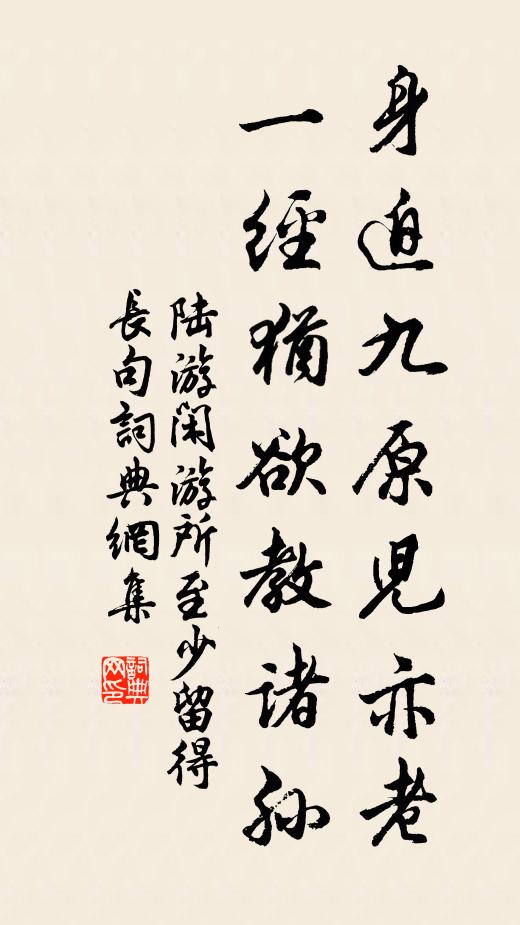 身迫九原兒亦老
一經猶欲教諸孫
陆游閑游所至少留得
長句詞典網集
詞典网印